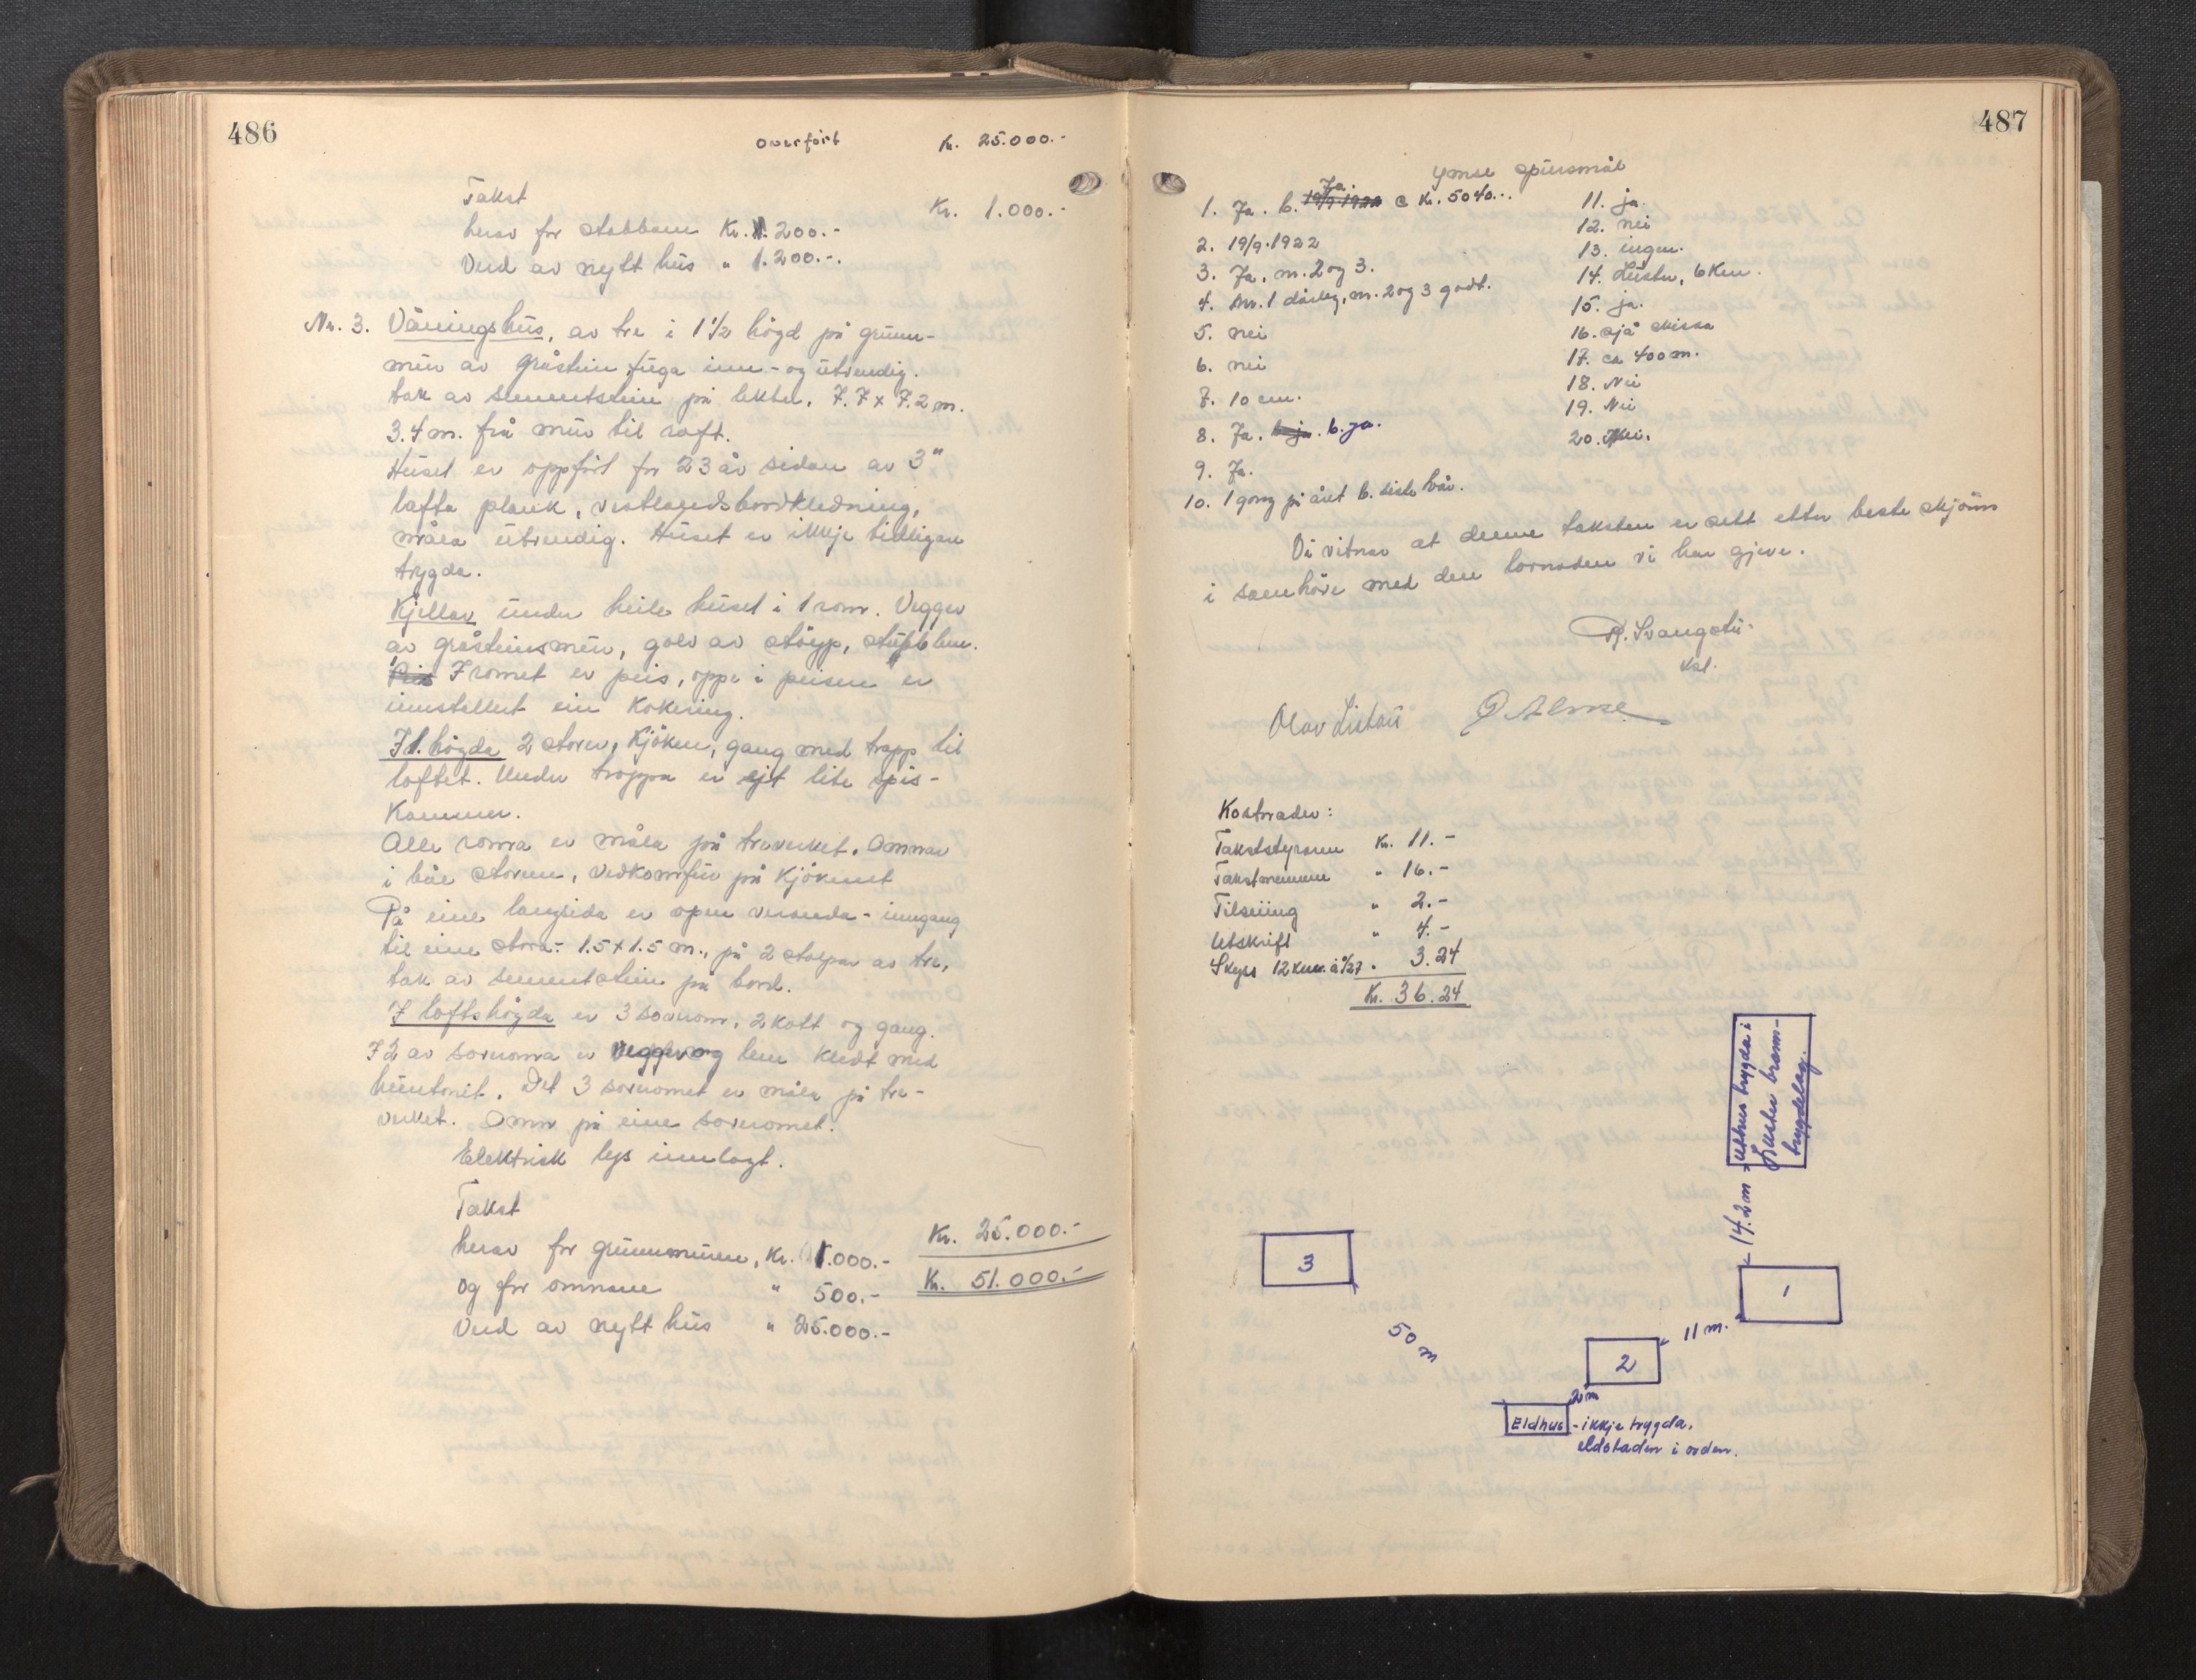 486
Overført Kr. 25.000.-
Takst Kr. 1.000.-
herav for stabbane Kr. 200.-
Verd av nytt hus " 1.200.-
Nr. 3. Våningshus, av tre i 1 1/2 høgd på grunn-
mur av gråstein fuga inn- og utvendig.
tak av sementstein på lekter. 7.7 x 7.2 m.
3.4 m. frå mur til raft.
Huset er oppført for 23 år sidan av 3"
lafta plank, vestlandsbordkledning,
måla utvendig. Huset er ikkje tidligare
trygda.
Kjellar under heile huset i 1 rom. Vegger
av gråsteinsmur, golv av støyp, stubblem.
I romet er peis, oppe i peisen er
innstallert ein kokering.
I 1. høgda 2 stover, kjøken, gang med trapp til
loftet. Under trappa er eit lite spis-
kammer.
Alle romma er måla på treverket. Omnar
i båe stovene, vedkomfur på kjøkenet
På eine langsida er open veranda - inngang
til eine stova - 1.5 x 1.5 m., på 2 stolpar av tre,
tak av sementstein på bord.
I loftshøgda er 3 soverom, 2 kott og gang.
I 2 av soveromma er vegger og lem kledt med
huntonit. Det 3 soveromet er måla på tre-
verket. Omn på eine soveromet.
Elektrisk lys innlagt.
Takst Kr. 25.000.-
herav for grunnmuren, Kr. 1.000.- Kr. 51.000.-
og for omnane " 500.-
Verd av nytt hus " 25.000.-
487
Ymse spursmål
1. Ja. b. Ja. 19/9 1922 c Kr. 5040.-.
2. 19/9.1922
3. Ja, nr. 2 og 3.
4. Nr. 1 dårleg, nr. 2 og 3 godt.
5. nei
6. nei
7. 10 cm.
8. Ja. b. ja.
9. Ja.
10. 1 gong på året b. siste vår.
11. ja.
12. nei
13. ingen.
14. Luster, 6 km.
15. ja.
16. sjå skissa
17. ca 400 m.
18. Nei
19. Nei
20. Nei.
Då vitnar at denne taksten er sett etter beste skjønn
i samhøve med den lovnaden vi har gjeve.
Kostnader:
Takststyraren Kr. 11.-
Takstmennene " 16.-
Tilseiing " 2.-
Utskrift " 4.-
Skyss 12 km. à 0/27 " 3.24
Kr. 36.24
uthus trygda i
Luster brann-
trygdelag.
14.2 m
3
1
50 m
11 m.
2
2 m
Eldhus - ikkje trygda,
eldstaden i orden.